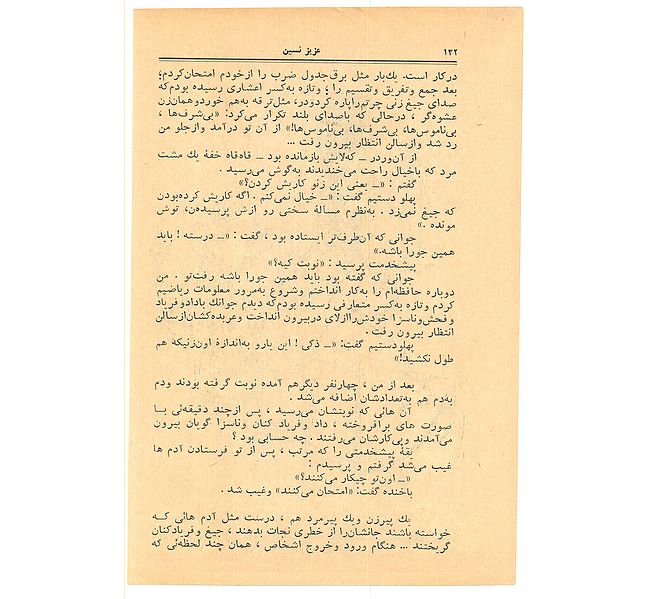 ۱۳۲ عزیز نسین
درکار است. یك‌بار مثل برق‌جدول ضرب را ازخودم امتحان‌کردم؛
بعد جمع وتفریق وتقسیم را ؛ وتازه به‌کسر اعشاری رسیده بودم‌که
صدای جیغ زنی چرتم‌راپاره کردودر، مثل‌ترقه به‌هم خوردوهمان‌زن
عشوه‌گر ، درحالی که باصدای بلند تکرار می‌کرد: «بی‌شرف‌ها ،
بی‌ناموس‌ها، بی‌شرف‌ها، بی‌ناموس‌ها!» از آن تو درآمد وازجلو من
رد شد وازسالن انتظار بیرون رفت ...
از آن‌وردر ـ که‌لایش بازمانده بود ـ قاه‌قاه خفهٔ یك مشت
مرد که باخیال راحت می‌خندیدند به‌گوش می‌رسید .
گفتم : «ـ یعنی این زنو کاریش کردن؟»
پهلو دستیم گفت: «ـ خیال نمی‌کنم . اگه کاریش کرده‌بودن
که جیغ نمی‌زد . به‌نظرم مسألهٔ سختی رو ازش پرسیده‌ن، توش
مونده .»
جوانی که آن‌طرف‌تر ایستاده بود ، گفت : «ـ درسته ! باید
همین جورا باشه.»
پیشخدمت پرسید : «نوبت کیه؟»
جوانی که گفته بود باید همین جورا باشه رفت‌تو . من
دوباره حافظه‌ام را به‌کار انداختم وشروع به‌مرور معلومات ریاضیم
کردم وتازه به‌کسر متعارفی رسیده بودم‌که دیدم جوانك بادادوفریاد
وفحش‌وناسزا خودش‌راازلای دربیرون انداخت وعربده‌کشان‌ازسالن
انتظار بیرون رفت .
پهلودستیم گفت: «ـ ذکی ! این یارو به‌اندازهٔ اون‌زنیکهٔ هم
طول نکشید!»
بعد از من ، چهارنفر دیگرهم آمده نوبت گرفته بودند ودم
به‌دم هم به‌تعدادشان اضافه می‌شد .
آن هائی که نوبتشان می‌رسید ، پس ازچند دقیقه‌ئی بـا
صورت های برافروخته ، داد وفریاد کنان وناسزا گویان بیرون
می‌آمدند وپی‌کارشان می‌رفتند . چه حسابی بود ؟
یقهٔ پیشخدمتی را که مرتب ، پس از تو فرستادن آدم ها
غیب می‌شد گرفتم و پرسیدم :
«ـ اون‌تو چیکار می‌کنند؟»
باخنده گفت: «امتحان می‌کنند» وغیب شد .
یك پیرزن ویك پیرمرد هم ، درست مثل آدم هائی کـه
خواسته باشند جانشان‌را از خطری نجات بدهند ، جیغ وفریادکنان
گریختند ... هنگام ورود وخروج اشخاص ، همان چند لحظه‌ئی که